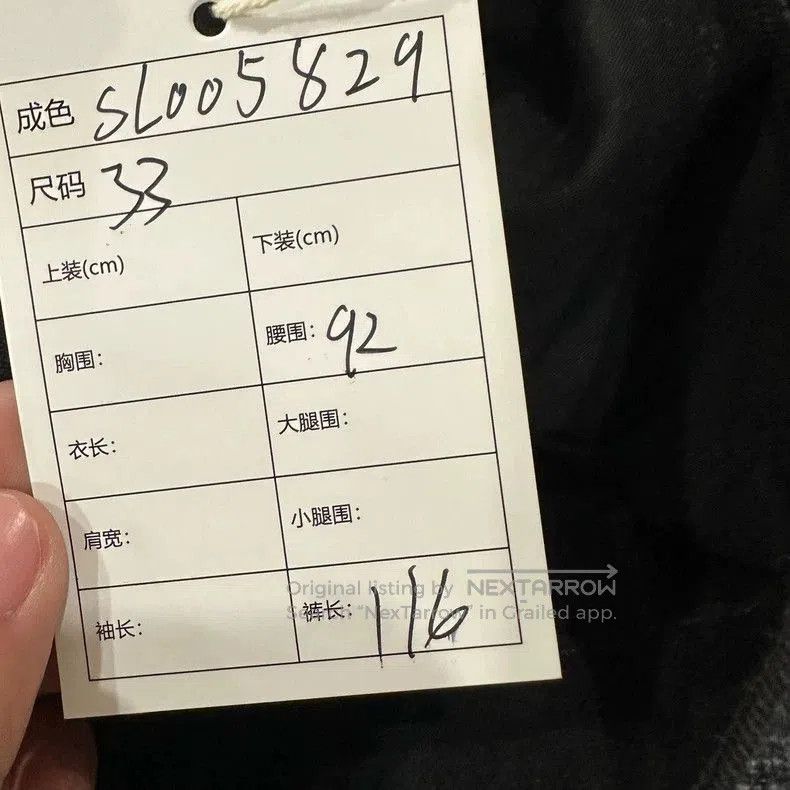 成色 SL005829
尺码 33
上装(cm) 下装(cm)
胸围: 腰围: 92
衣长: 大腿围:
肩宽: 小腿围:
袖长: 裤长: 116
Original listing by NEXTARROW
Search "NexTarrow" in Grailed app.